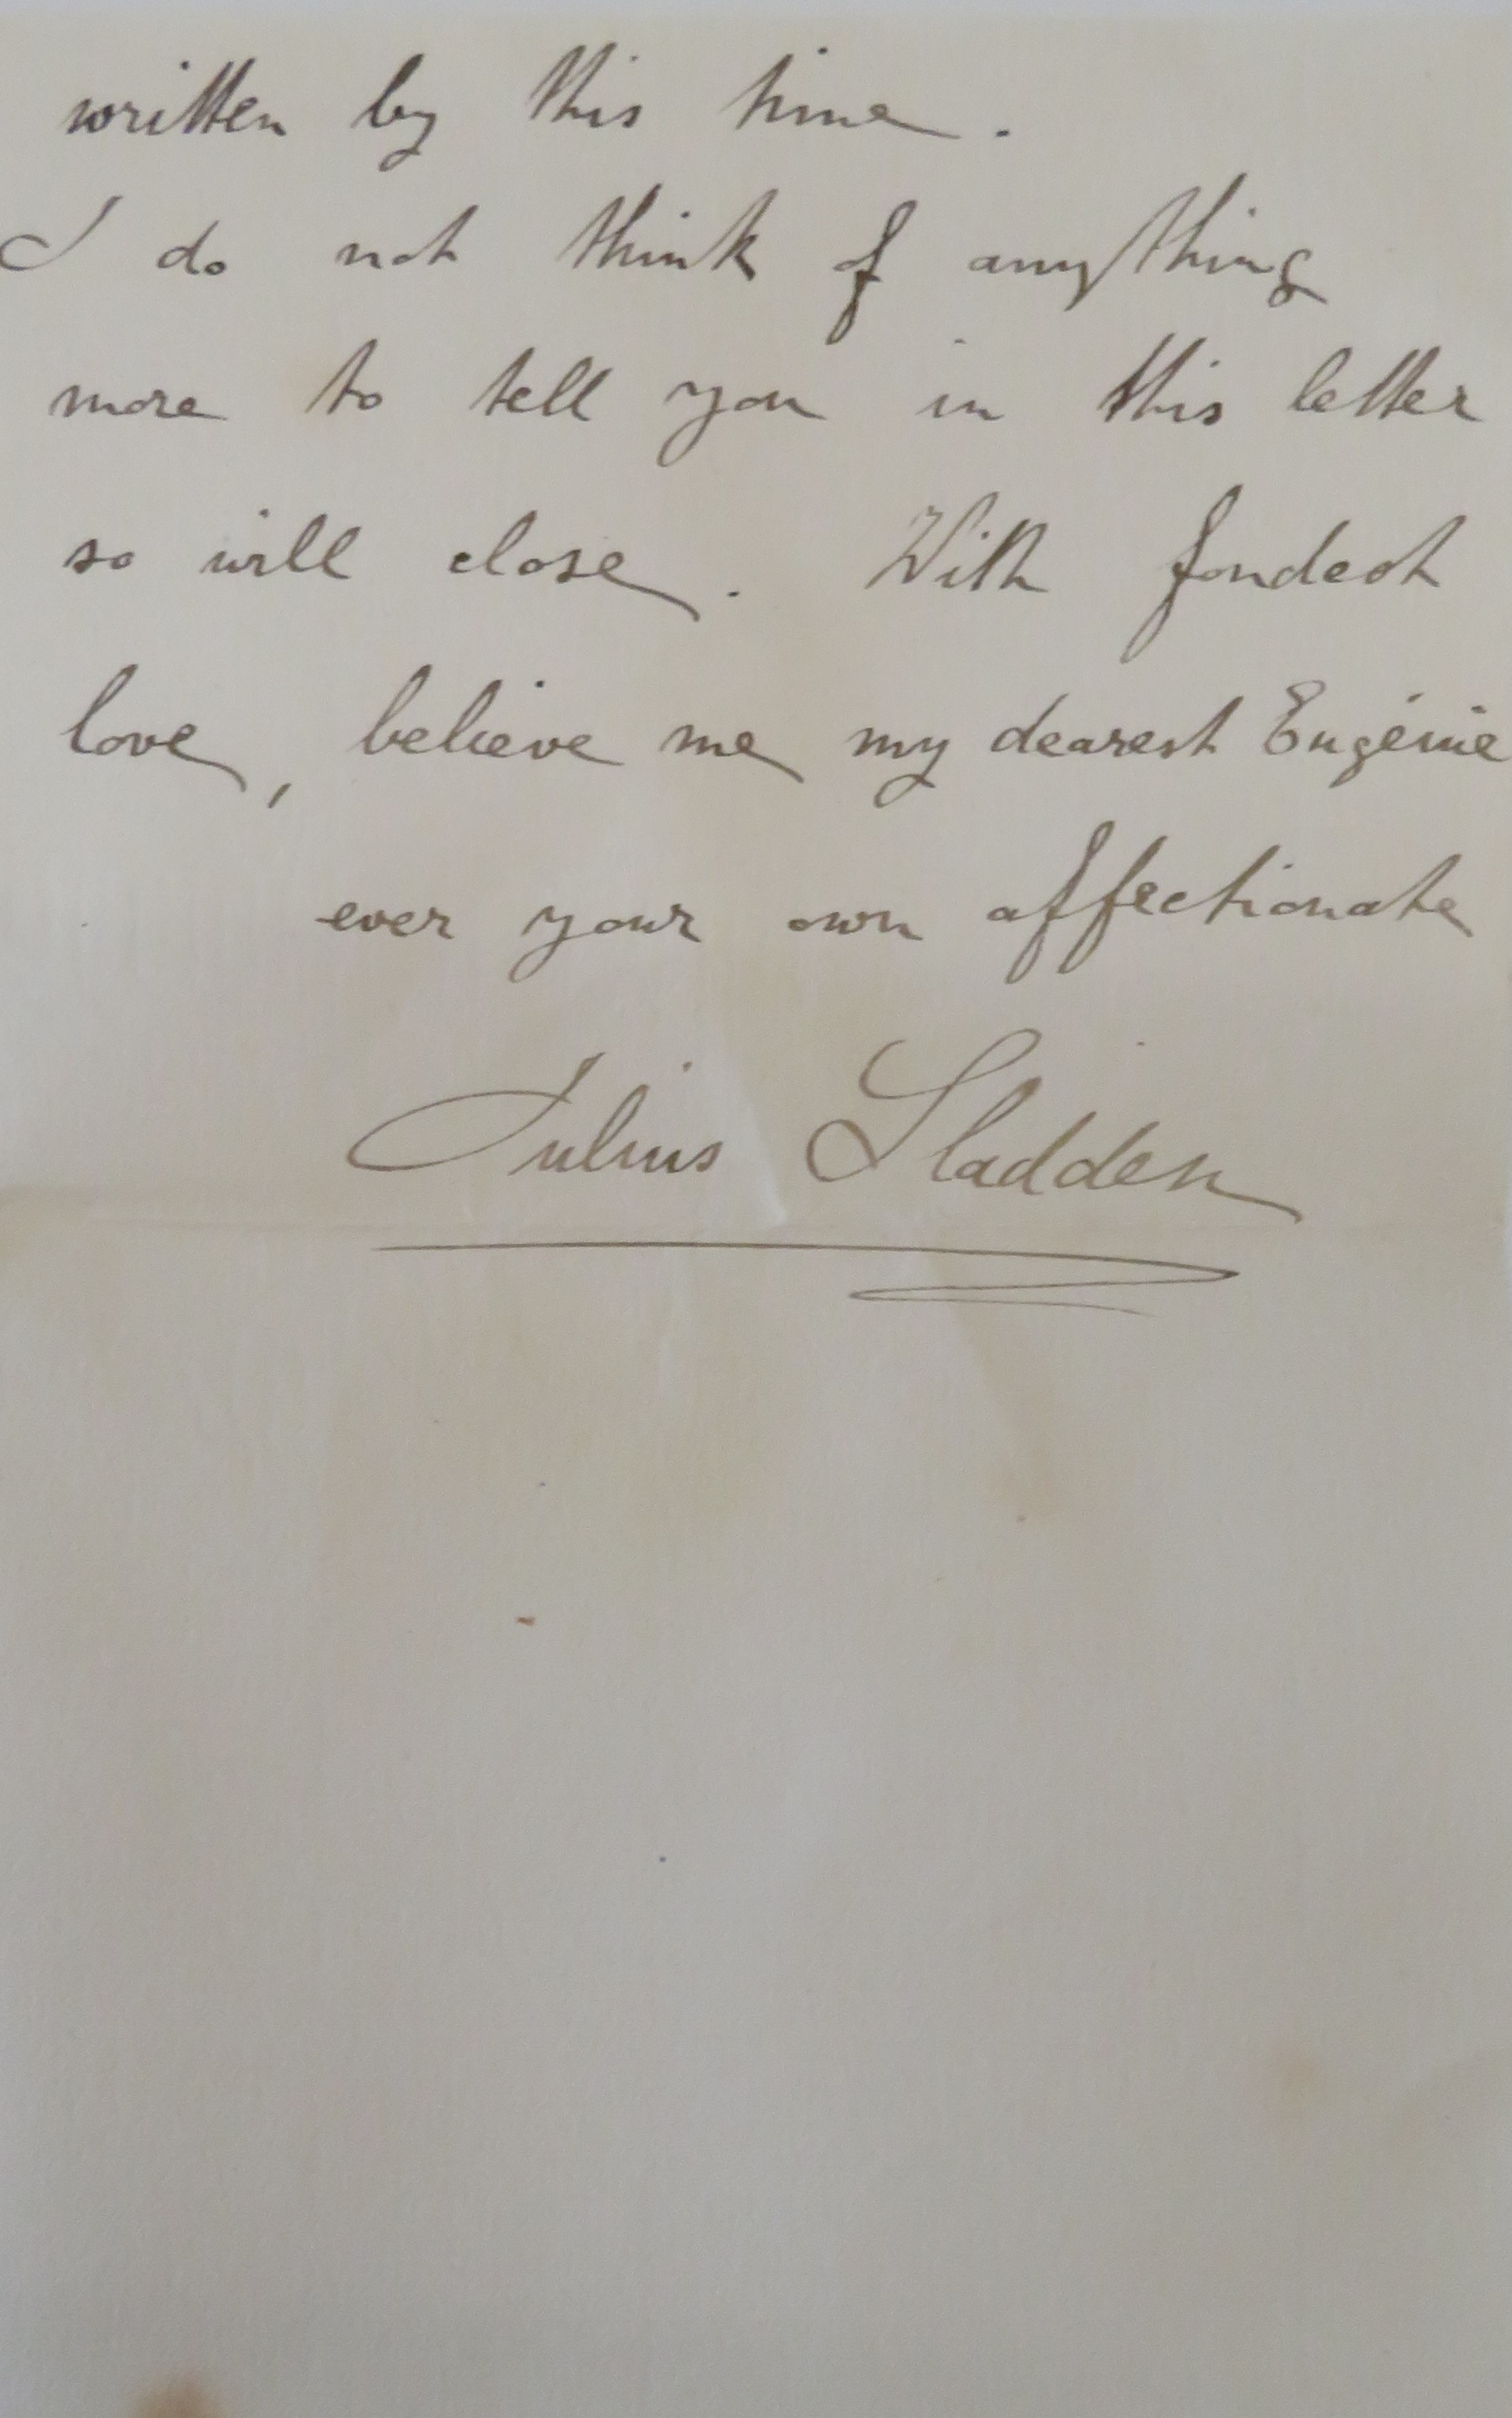 written by this time.
I do not think of anything
more to tell you in this letter
so will close. With fondest
love, believe me my dearest Eugénie
ever your own affectionate
Julius Sladden